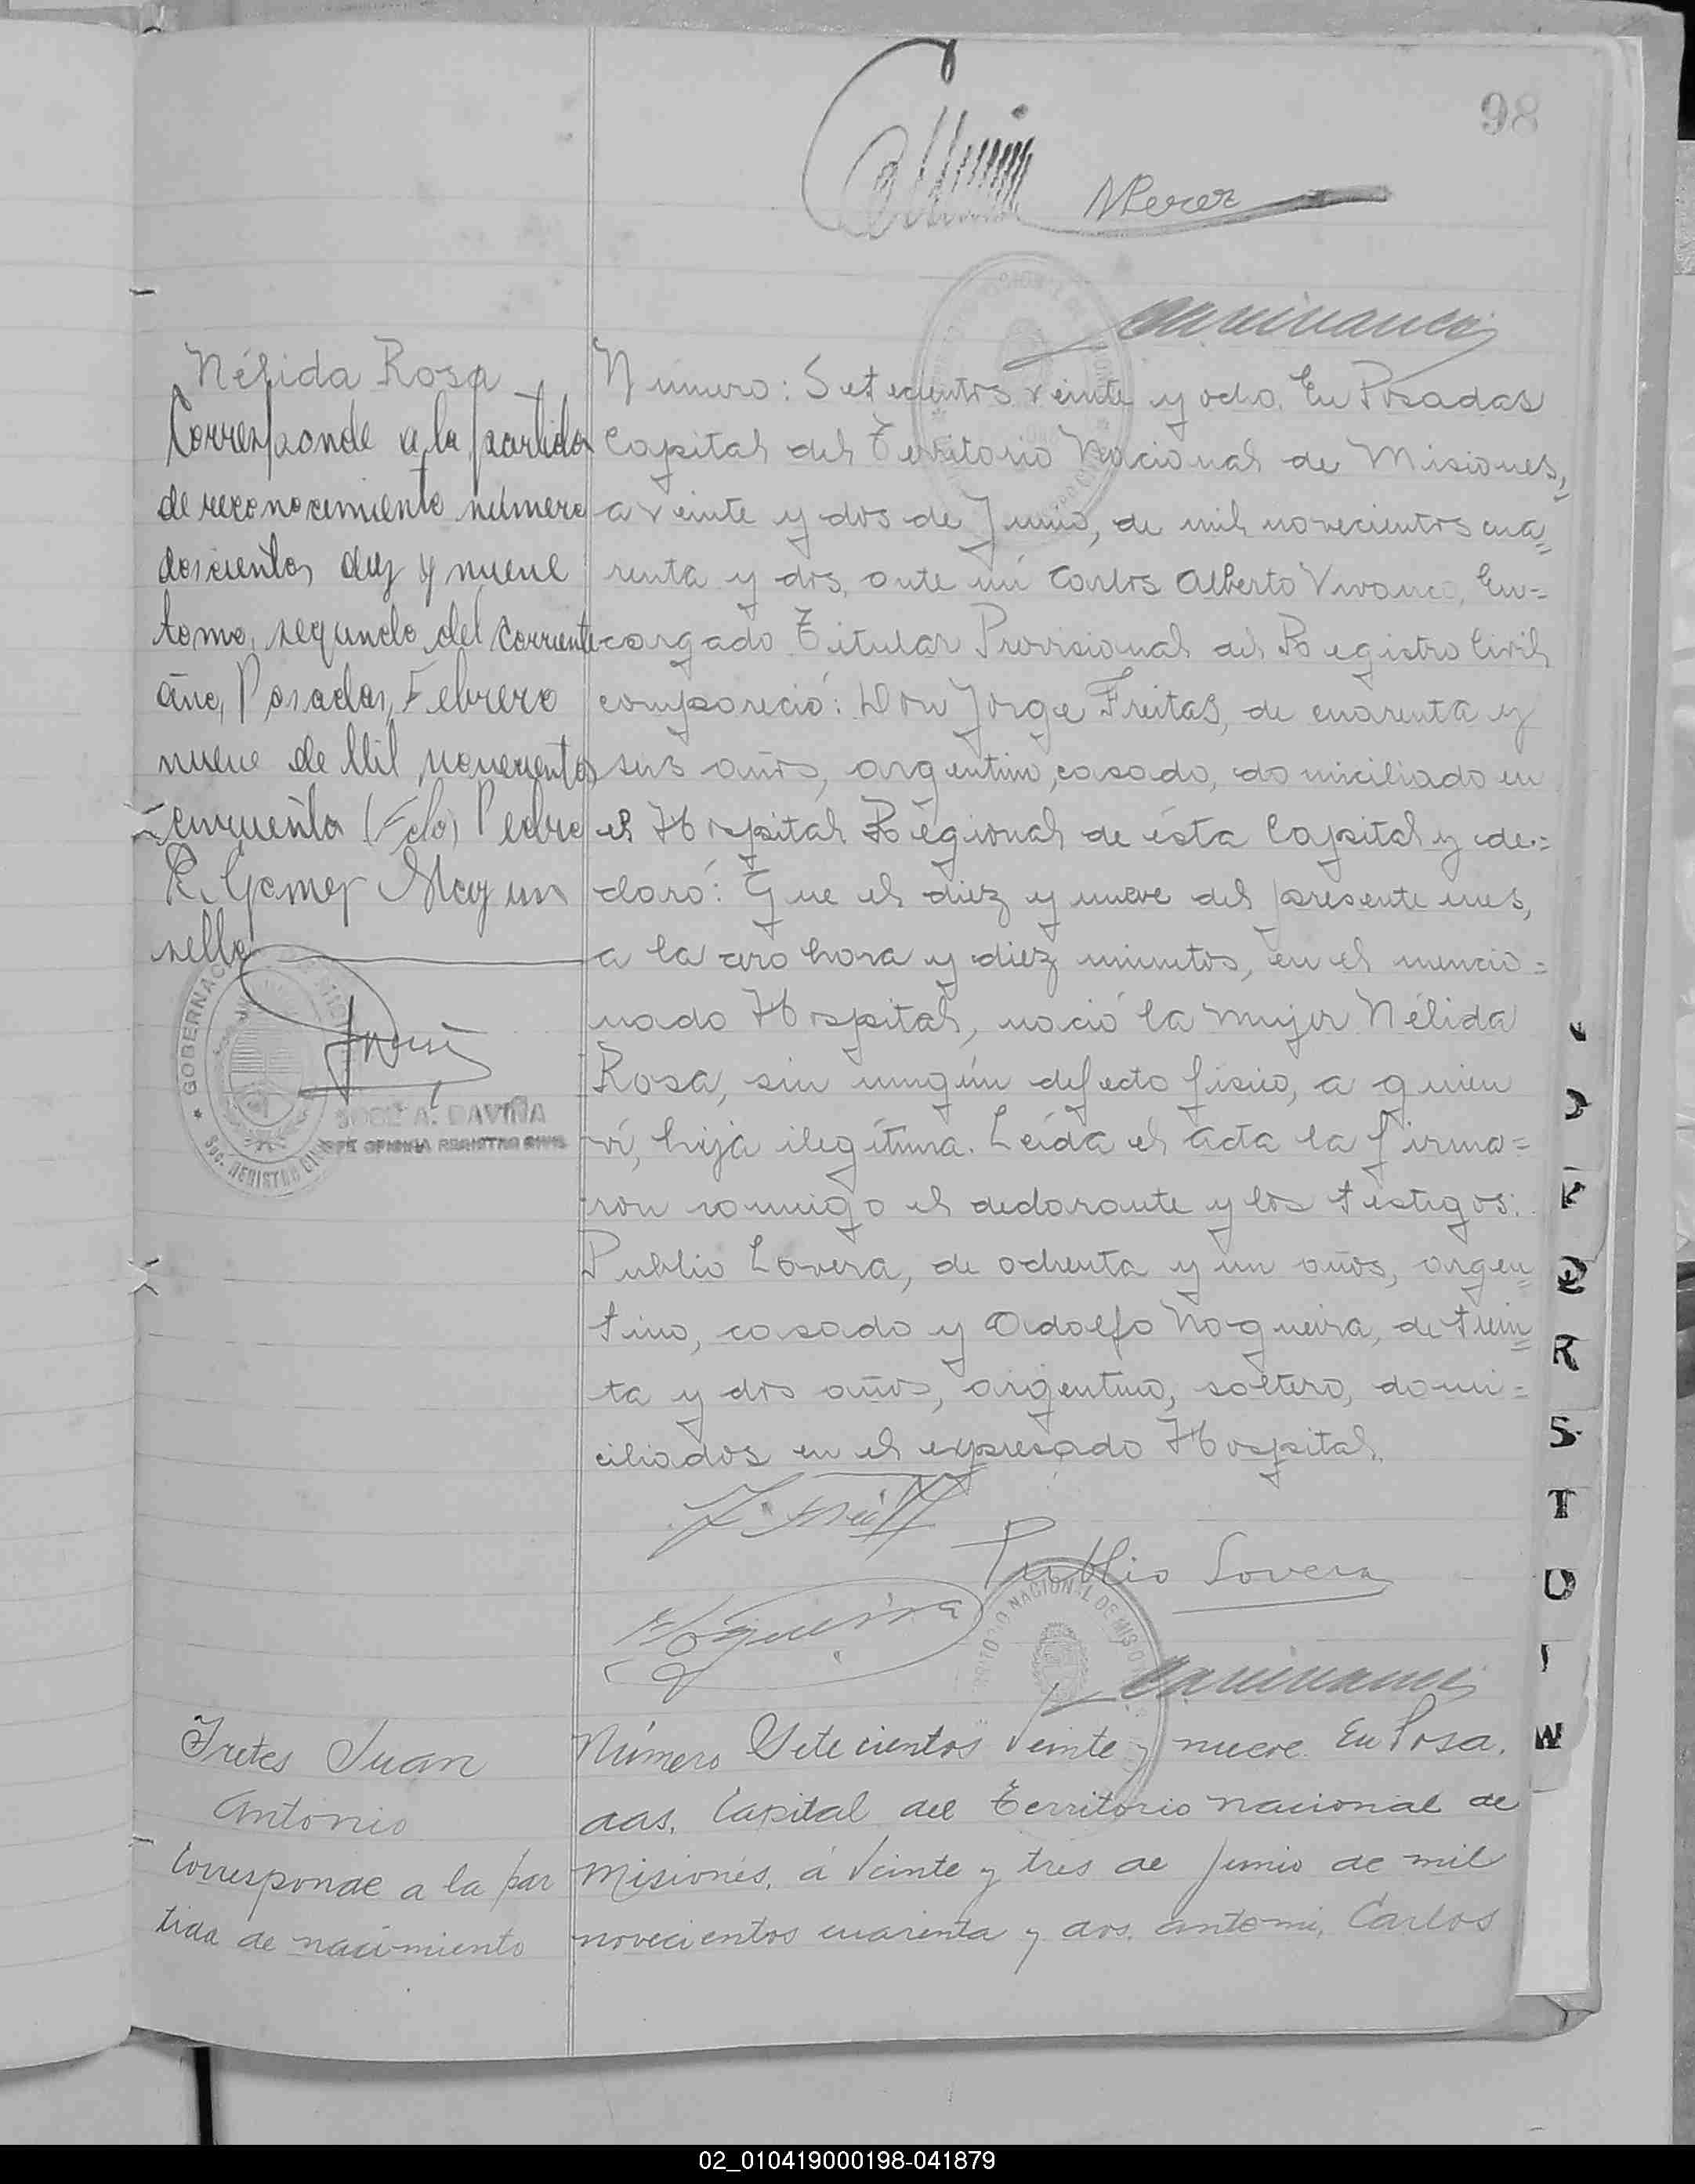 98
NPerez
Nélida Rosa
Corresponde a la partida
de reconocimiento número
doscientos diez y nueve
tomo, segundo del corriente
año, Posadas, Febrero
nueve de Mil novecientos
cincuenta (Fdo) Pedro
R. Gomez Hay un
sello
GOBERNAC
REGISTRO CIVIL
JOSE A. DAVIÑA
JEFE OFICINA REGISTRO CIVIL
Número: Setecientos veinte y ocho. En Posadas
Capital del Territorio Nacional de Misiones,
a veinte y dos de Junio, de mil novecientos cua=
renta y dos, ante mí Carlos Alberto Vivanco, En=
cargado Titular Provisional del Registro Civil
compareció: Don Jorge Freitas, de cuarenta y
seis años, argentino, casado, domiciliado en
el Hospital Regional de ésta Capital y de=
claró: Que el diez y nueve del presente mes,
a la cero hora y diez minutos, en el mencio=
nado Hospital, nació la mujer Nélida
Rosa, sin ningún defecto físico, a quien
ví, hija ilegítima. Leída el acta la firma=
ron conmigo el declarante y los testigos:
Publio Lovera, de ochenta y un años, argen=
tino, casado y Adolfo Nogueira, de trein=
ta y dos años, argentino, soltero, domi=
ciliados en el expresado Hospital.
Publio Lovera
Nogueira
TERRITORIO NACIONAL DE MISIO
Fretes Juan
Antonio
Corresponde a la par
tida de nacimiento
Número Setecientos Veinte y nueve. En Posa.
das, Capital del Territorio nacional de
Misiones, á Veinte y tres de Junio de mil
novecientos cuarenta y dos. ante mi, Carlos
R
S
T
U
W
02_010419000198-041879